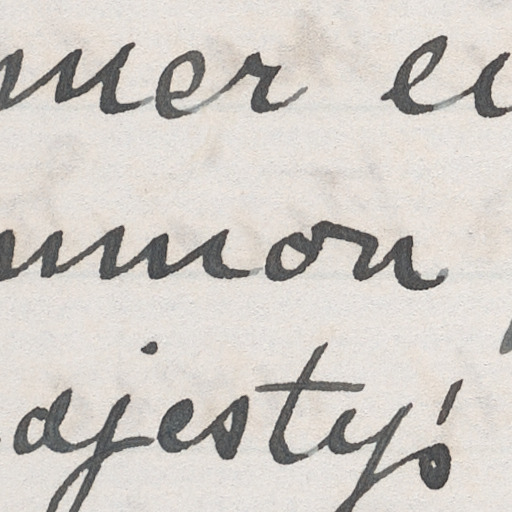 mer eu
mmon
ajesty's